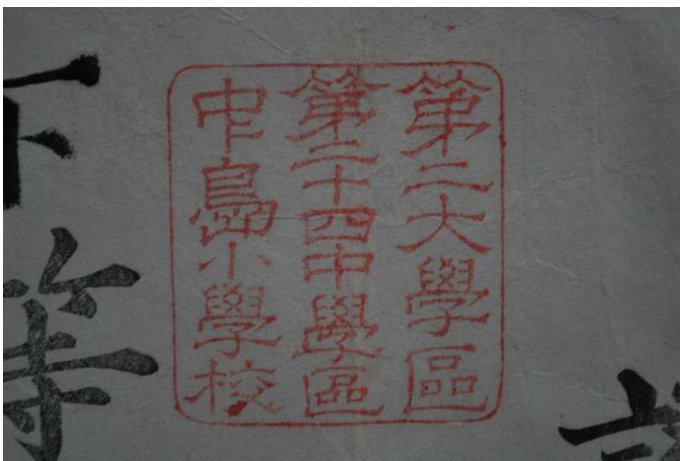 第二大學區
第二十四中學區
中島小學校
下等